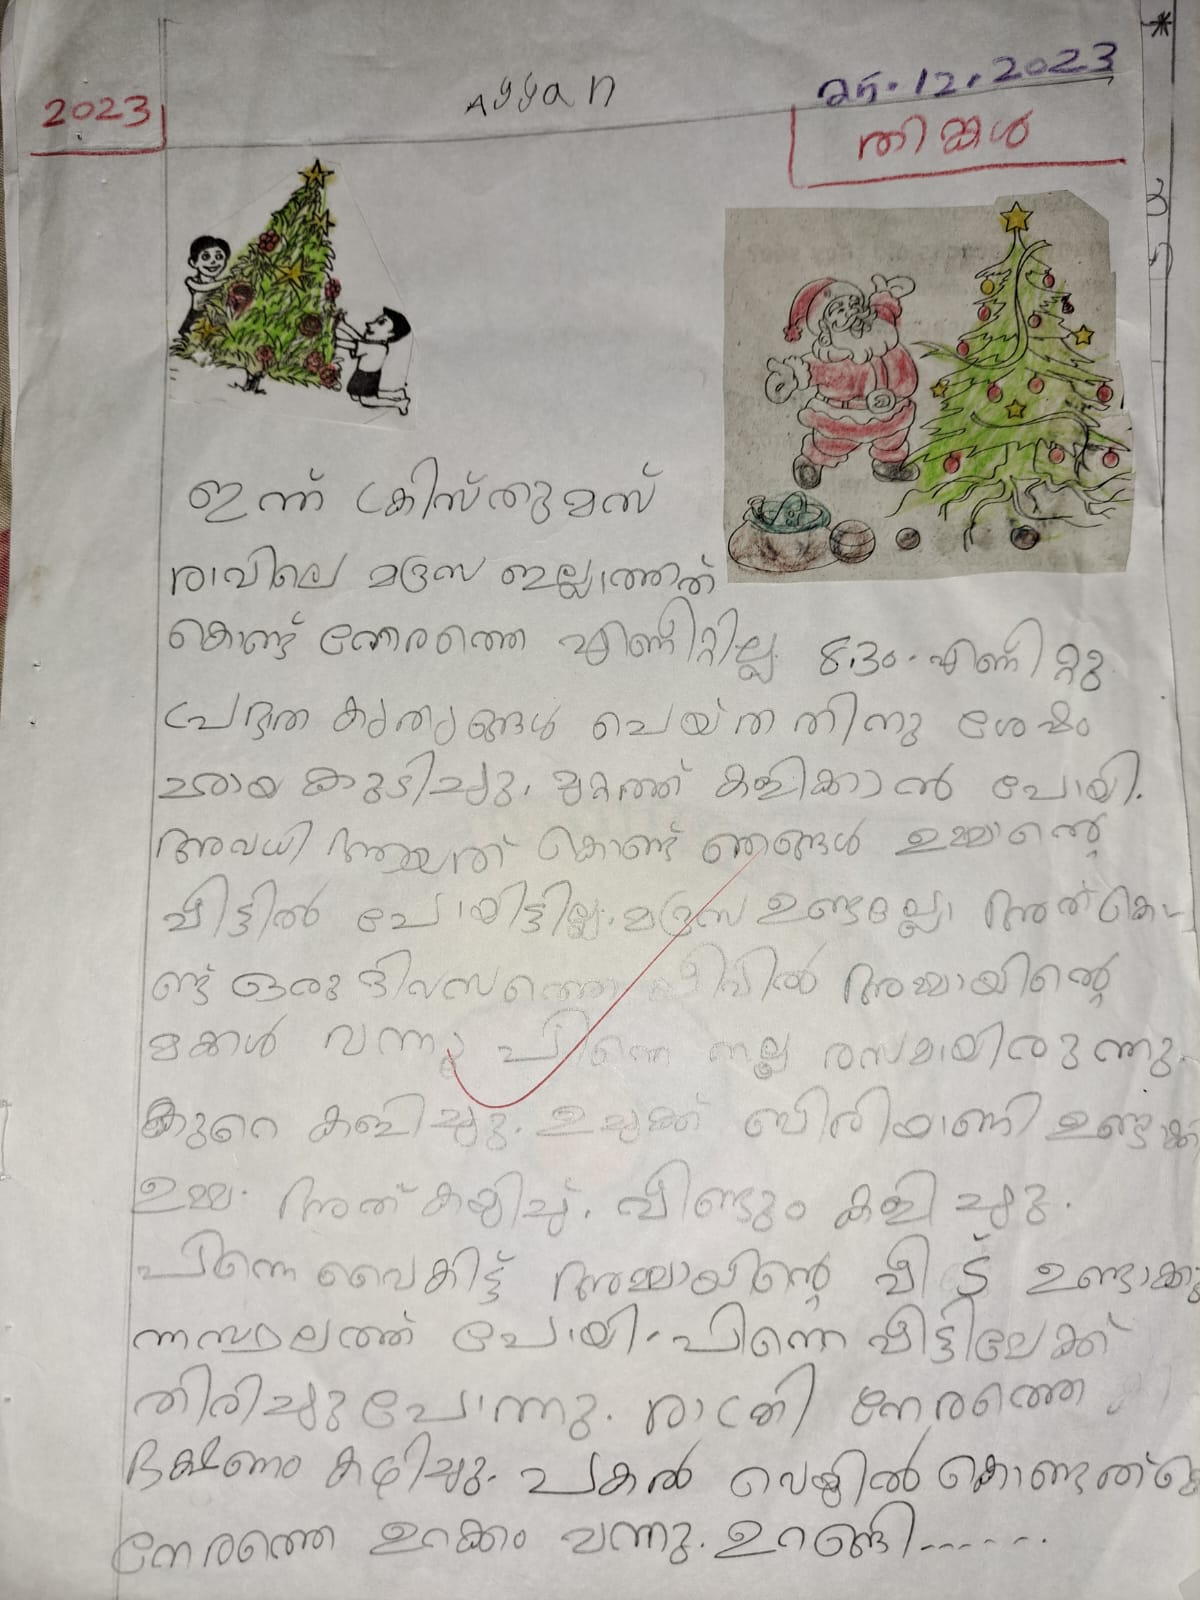 Ayyan
2023
25.12.2023
തിങ്കൾ
ഇന്ന് ക്രിസ്തുമസ്
രാവിലെ മദ്രസ ഇല്ലാത്തത്
കൊണ്ട് നേരത്തെ എണീറ്റില്ല. 8.30. എണീറ്റു
പ്രഭാത കൃത്യങ്ങൾ ചെയ്തതിനു ശേഷം
ചായ കുടിച്ചു. മുറ്റത്ത് കളിക്കാൻ പോയി.
അവധി ആയത് കൊണ്ട് ഞങ്ങൾ ഉമ്മാന്റെ
വീട്ടിൽ പോയിട്ടില്ല. മദ്രസ ഉണ്ടല്ലോ അത് കൊ-
ണ്ട് ഒരു ദിവസത്തെ ലീവിൽ അമ്മായിന്റെ
മക്കൾ വന്നു പിന്നെ നല്ല രസമായിരുന്നു.
കുറെ കളിച്ചു. ഉച്ചക്ക് ബിരിയാണി ഉണ്ടാക്കി
ഉമ്മ. അത് കഴിച്ച്. വീണ്ടും കളിച്ചു.
പിന്നെ വൈകിട്ട് അമ്മായിന്റെ വീട് ഉണ്ടാക്കു
ന്ന സ്ഥലത്ത് പോയി. പിന്നെ വീട്ടിലേക്ക്
തിരിച്ചു പോന്നു. രാത്രി നേരത്തെ
ഭക്ഷണം കഴിച്ചു. പകൽ വെയിൽ കൊണ്ടത്
നേരത്തെ ഉറക്കം വന്നു. ഉറങ്ങി.......